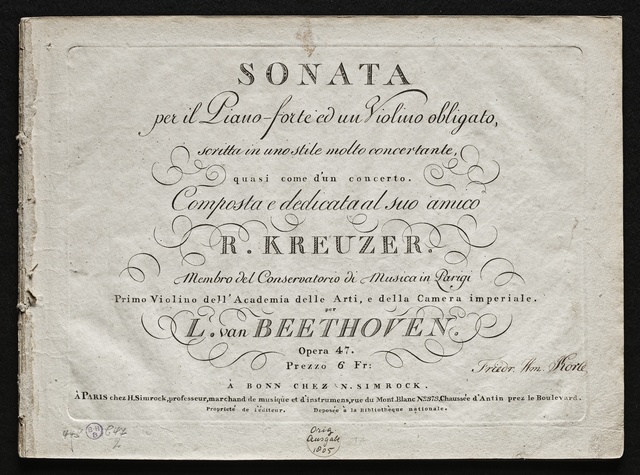 SONATA
per il Piano-forte ed un Violino obligato,
scritta in uno stile molto concertante,
quasi come d'un concerto.
Composta e dedicata al suo amico
R. KREUZER.
Membro del Conservatorio di Musica in Parigi
Primo Violino dell'Academia delle Arti, e della Camera imperiale.
per
L. van BEETHOVEN.
Opera 47.
Prezzo 6 Fr:
À BONN CHEZ N. SIMROCK.
À PARIS chez H. Simrock, professeur, marchand de musique et d'instrumens, rue du Mont Blanc Nº 373, Chaussée d'Antin prez le Boulevard.
Propriété de l'éditeur. Deposée à la Bibliothèque nationale.
Orig
Ausgabe
1805